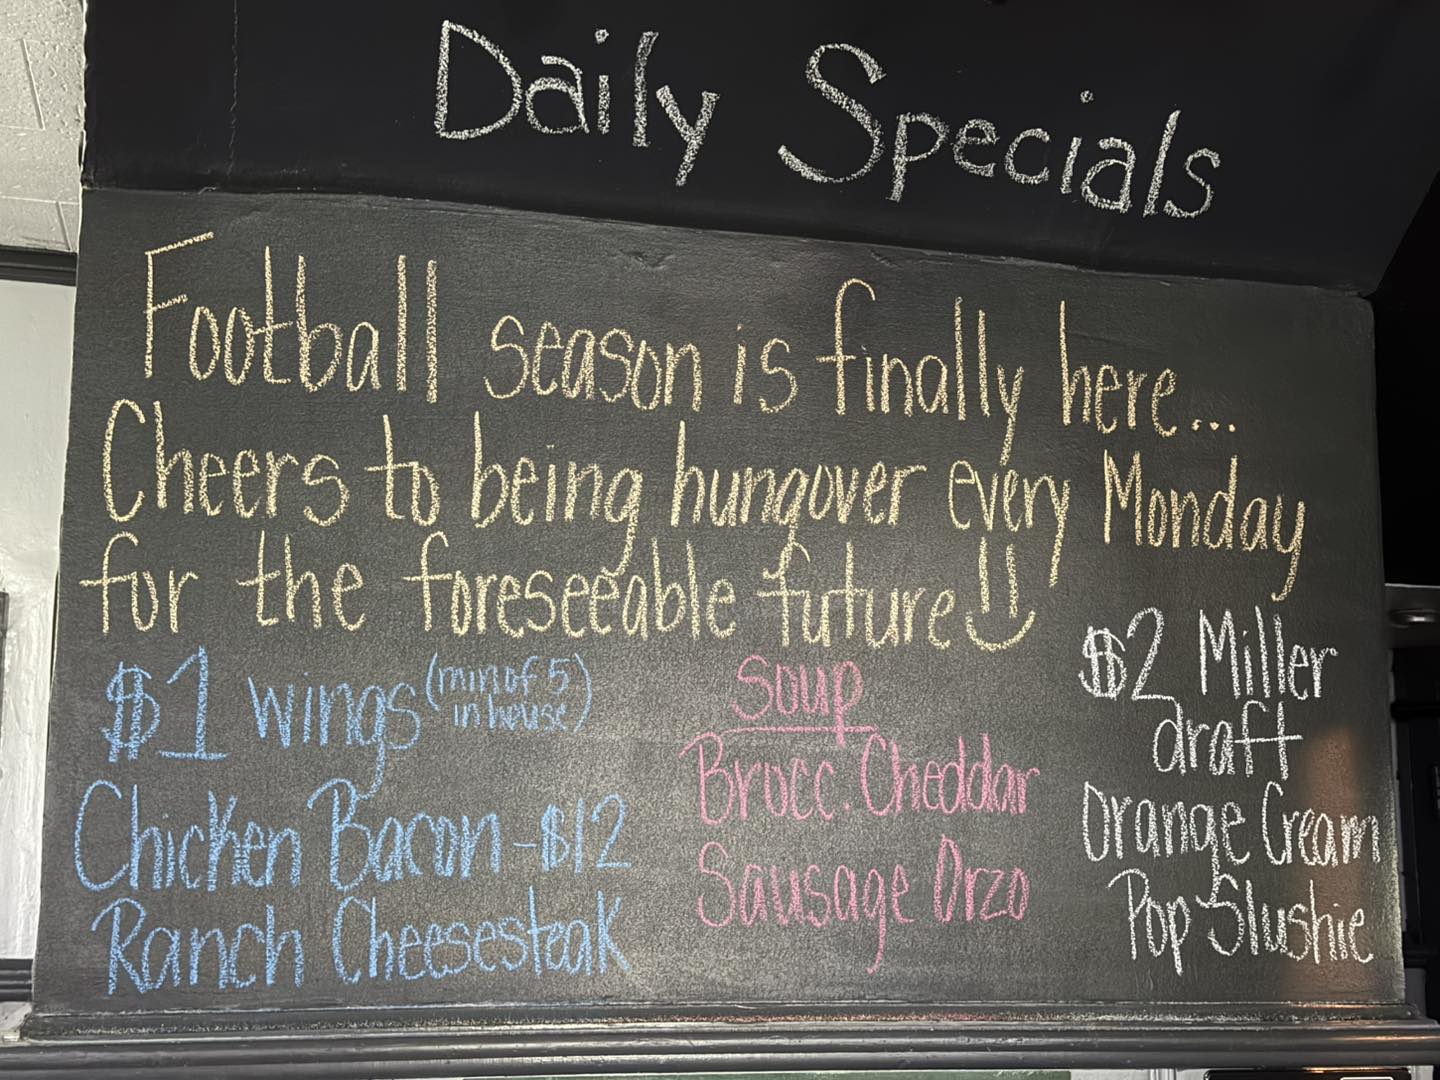 Daily Specials
Football season is finally here...
Cheers to being hungover every Monday
for the foreseeable future
$1 wings (min of 5
in house)
Chicken Bacon - $12
Ranch Cheesesteak
Soup
Brocc. Cheddar
Sausage Orzo
$2 Miller
draft
Orange Cream
Pop Slushie